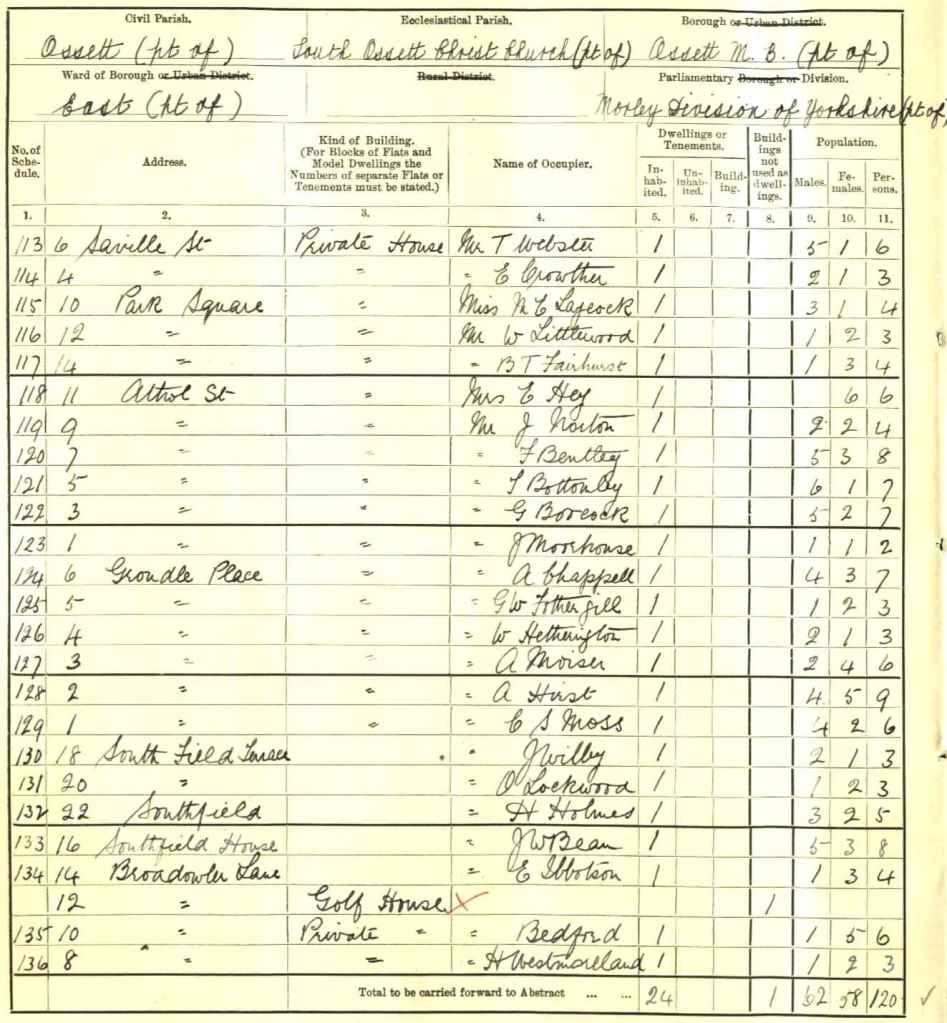 Civil Parish. Ecclesiastical Parish. Borough or Urban District.
Ossett (pt of) South Ossett Christ Church (pt of) Ossett M. B. (pt of)
Ward of Borough or Urban District. Rural District. Parliamentary Borough or Division.
East (pt of) Morley Division of Yorkshire (pt of)
No. of Schedule. Address. Kind of Building. (For Blocks of Flats and Model Dwellings the Numbers of separate Flats or Tenements must be stated.) Name of Occupier. Dwellings or Tenements. Inhabited. Uninhabited. Building. Buildings not used as dwellings. Population. Males. Females. Persons.
1. 2. 3. 4. 5. 6. 7. 8. 9. 10. 11.
113 6 Saville St Private House Mr T Webster 1 5 1 6
114 4 " " " E Crowther 1 2 1 3
115 10 Park Square " Miss M E Laycock 1 3 1 4
116 12 " " Mr W Littlewood 1 1 2 3
117 14 " " " B T Fairhurst 1 1 3 4
118 11 Athol St " Mrs E Hey 1 6 6
119 9 " " Mr J Norton 1 2 2 4
120 7 " " " F Bentley 1 5 3 8
121 5 " " " Bottomley 1 6 1 7
122 3 " " " G Borcock 1 5 2 7
123 1 " " " J Moorhouse 1 1 1 2
124 6 Groudle Place " " A Chappell 1 4 3 7
125 5 " " " G W Fothergill 1 1 2 3
126 4 " " " W Hetherington 1 2 1 3
127 3 " " " A Moiser 1 2 4 6
128 2 " " " A Hirst 1 4 5 9
129 1 " " " C S Moss 1 4 2 6
130 18 South Field Terrace " J Wilby 1 2 1 3
131 20 " " O Lockwood 1 1 2 3
132 22 Southfield " H Holmes 1 3 2 5
133 16 Southfield House " J W Bean 1 5 3 8
134 14 Broadowler Lane " E Ibbotson 1 1 3 4
12 " Golf House X 1
135 10 " Private " " Bedford 1 1 5 6
136 8 " " " H Westmoreland 1 1 2 3
Total to be carried forward to Abstract ... ... 24 1 62 58 120 ✓